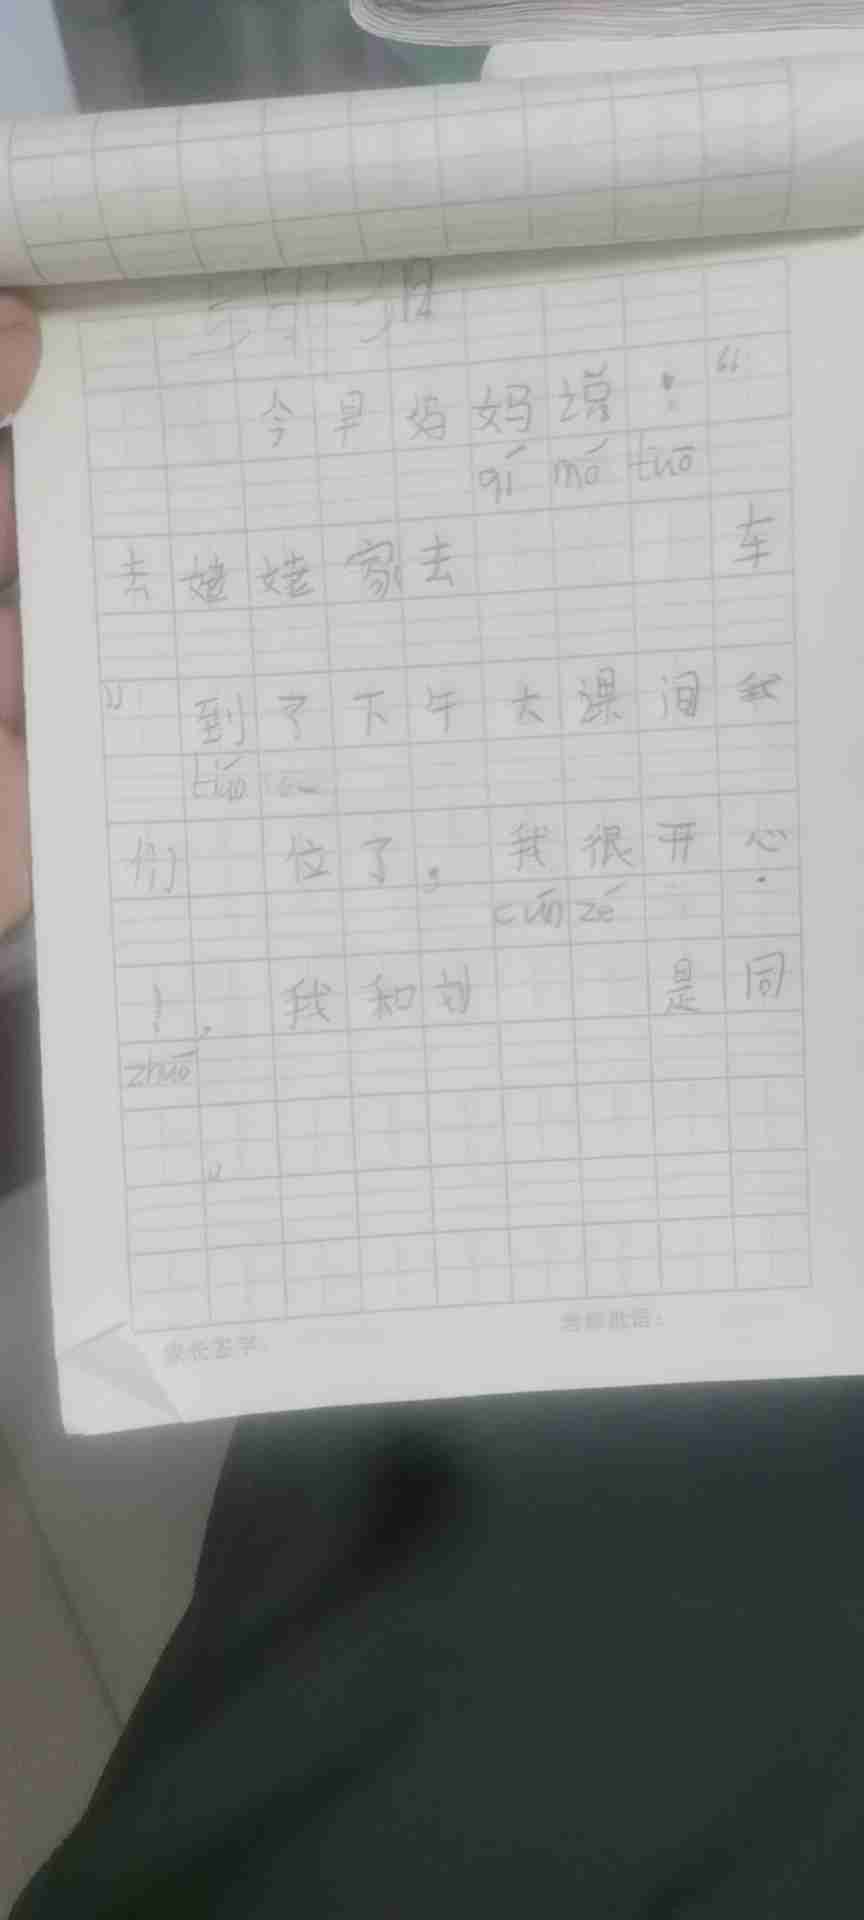 今早妈妈说：“
qí mó tuō
去娃娃家去 车
” 到了下午大课间我
们 位了，我很开心
cún zé
！我和刘 是同
zhuō
。
家长签字：
老师批语：